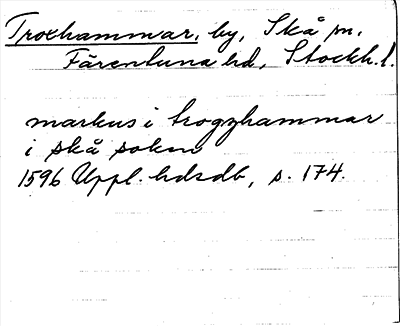 Troxhammar, by, Skå sn,
Färentuna hd, Stockh. l.
markus i trogzhammar
i skå soken
1596 Uppl. hdsdb, s. 174.